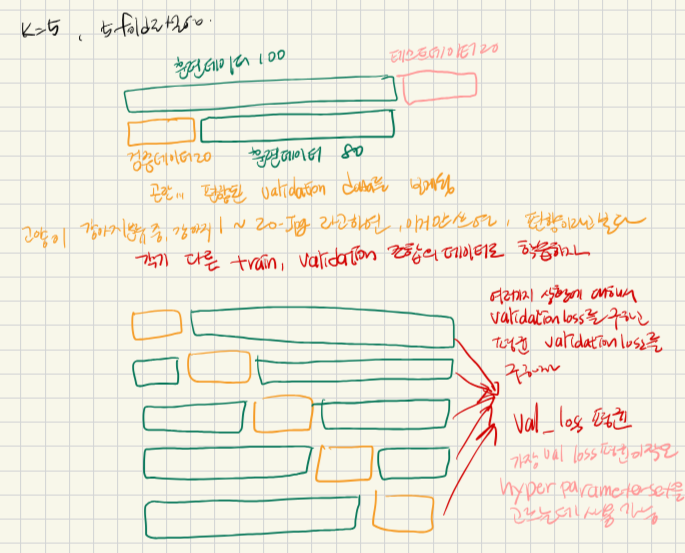 K=5, 5fold라고함.
훈련데이터 100
테스트데이터 20
검증데이터 20
훈련데이터 80
편향된 validation data를
고양이 강아지분류중, 강아지 1 ~ 20.jpg 라고하면, 이거만쓰면, 편향이라고본다
각기 다른 train, validation 조합의 데이터로 학습하자
여러가지 상황에 대해서
validation loss를 구하고
평균 validation loss를
구하자
val_loss 평균
가장 val loss 평균이작은
hyper parameter set을
고르는데 사용 가능